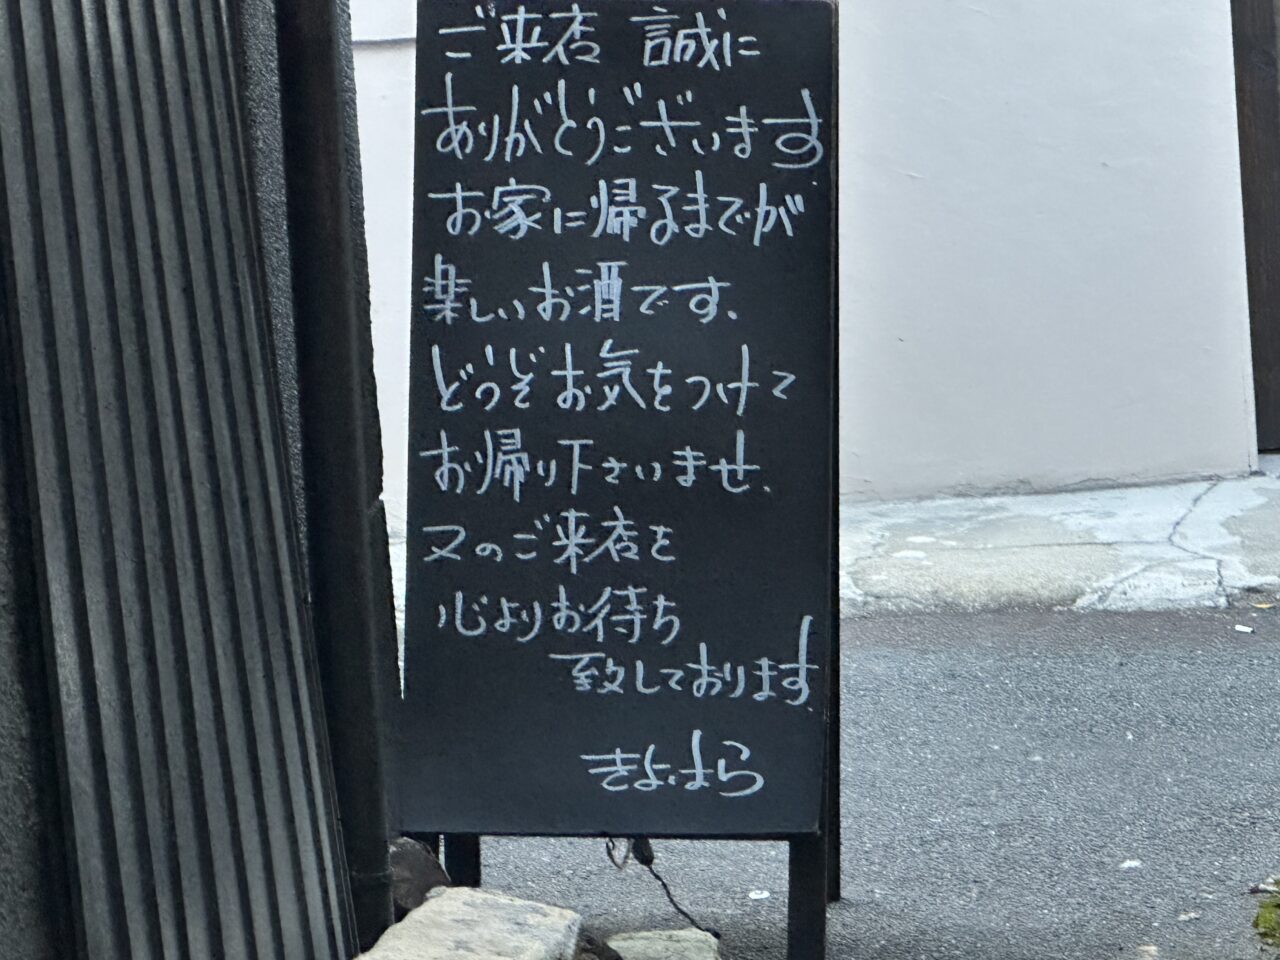 ご来店 誠に
ありがとうございます
お家に帰るまでが
楽しいお酒です、
どうぞお気をつけて
お帰り下さいませ、
又のご来店を
心よりお待ち
致しております
きよはら